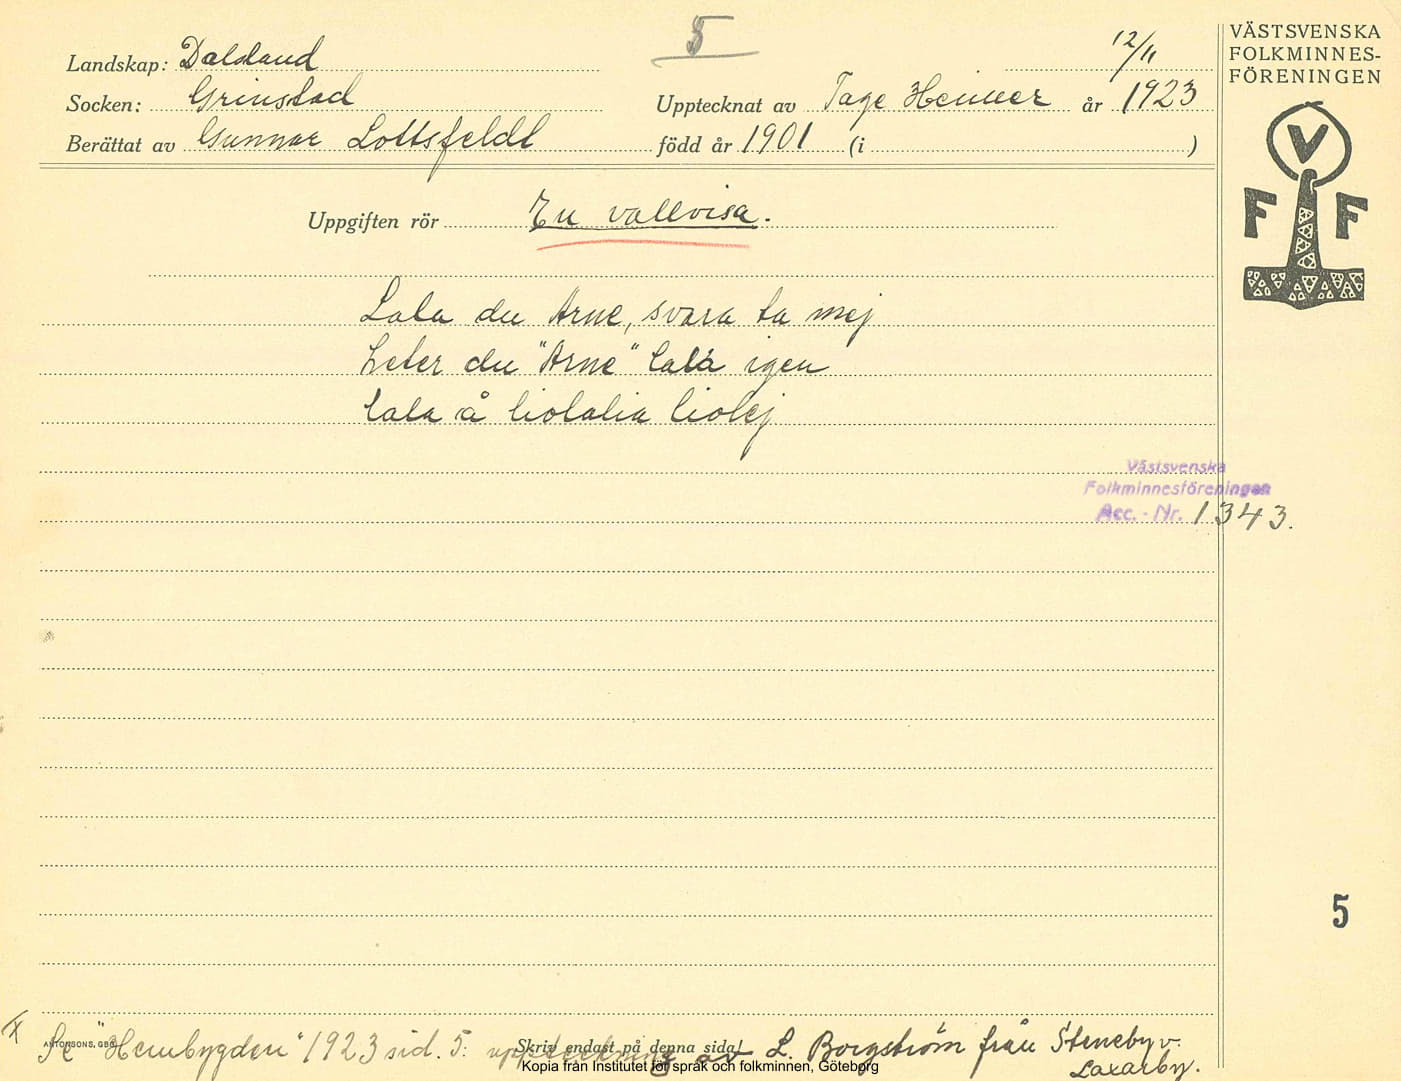 5
12/11
Landskap: Dalsland
Socken: Grinstad
Upptecknat av Tage Heimer år 1923
Berättat av Gunnar Lottsfeldt
född år 1901 (i )
VÄSTSVENSKA
FOLKMINNES-
FÖRENINGEN
V
F F
Uppgiften rör En vallvisa.
Lala du Arne, svara ta mej
heter du "Arne" lala igen
lala å liolalia liolej
Västsvenska
Folkminnesföreningen
Acc. - Nr. 1343.
5
X Se "Hembygden" 1923 sid. 5: uppteckning av L. Borgström från Steneby v.
Laxarby.
ANTONSONS, GBG.
Skriv endast på denna sida!
Kopia från Institutet för språk och folkminnen, Göteborg